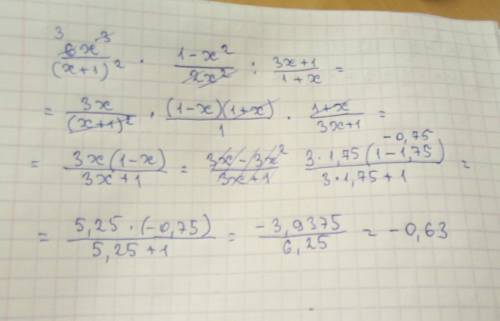 3
6x³/(x+1)² · 1-x²/2x² : 3x+1/1+x =
= 3x/(x+1)² · (1-x)(1+x)/1 · 1+x/3x+1 =
-0,75
= 3x(1-x)/3x+1 = 3x-3x²/3x+1 3·1,75(1-1,75)/3·1,75+1 =
= 5,25·(-0,75)/5,25+1 = -3,9375/6,25 = -0,63